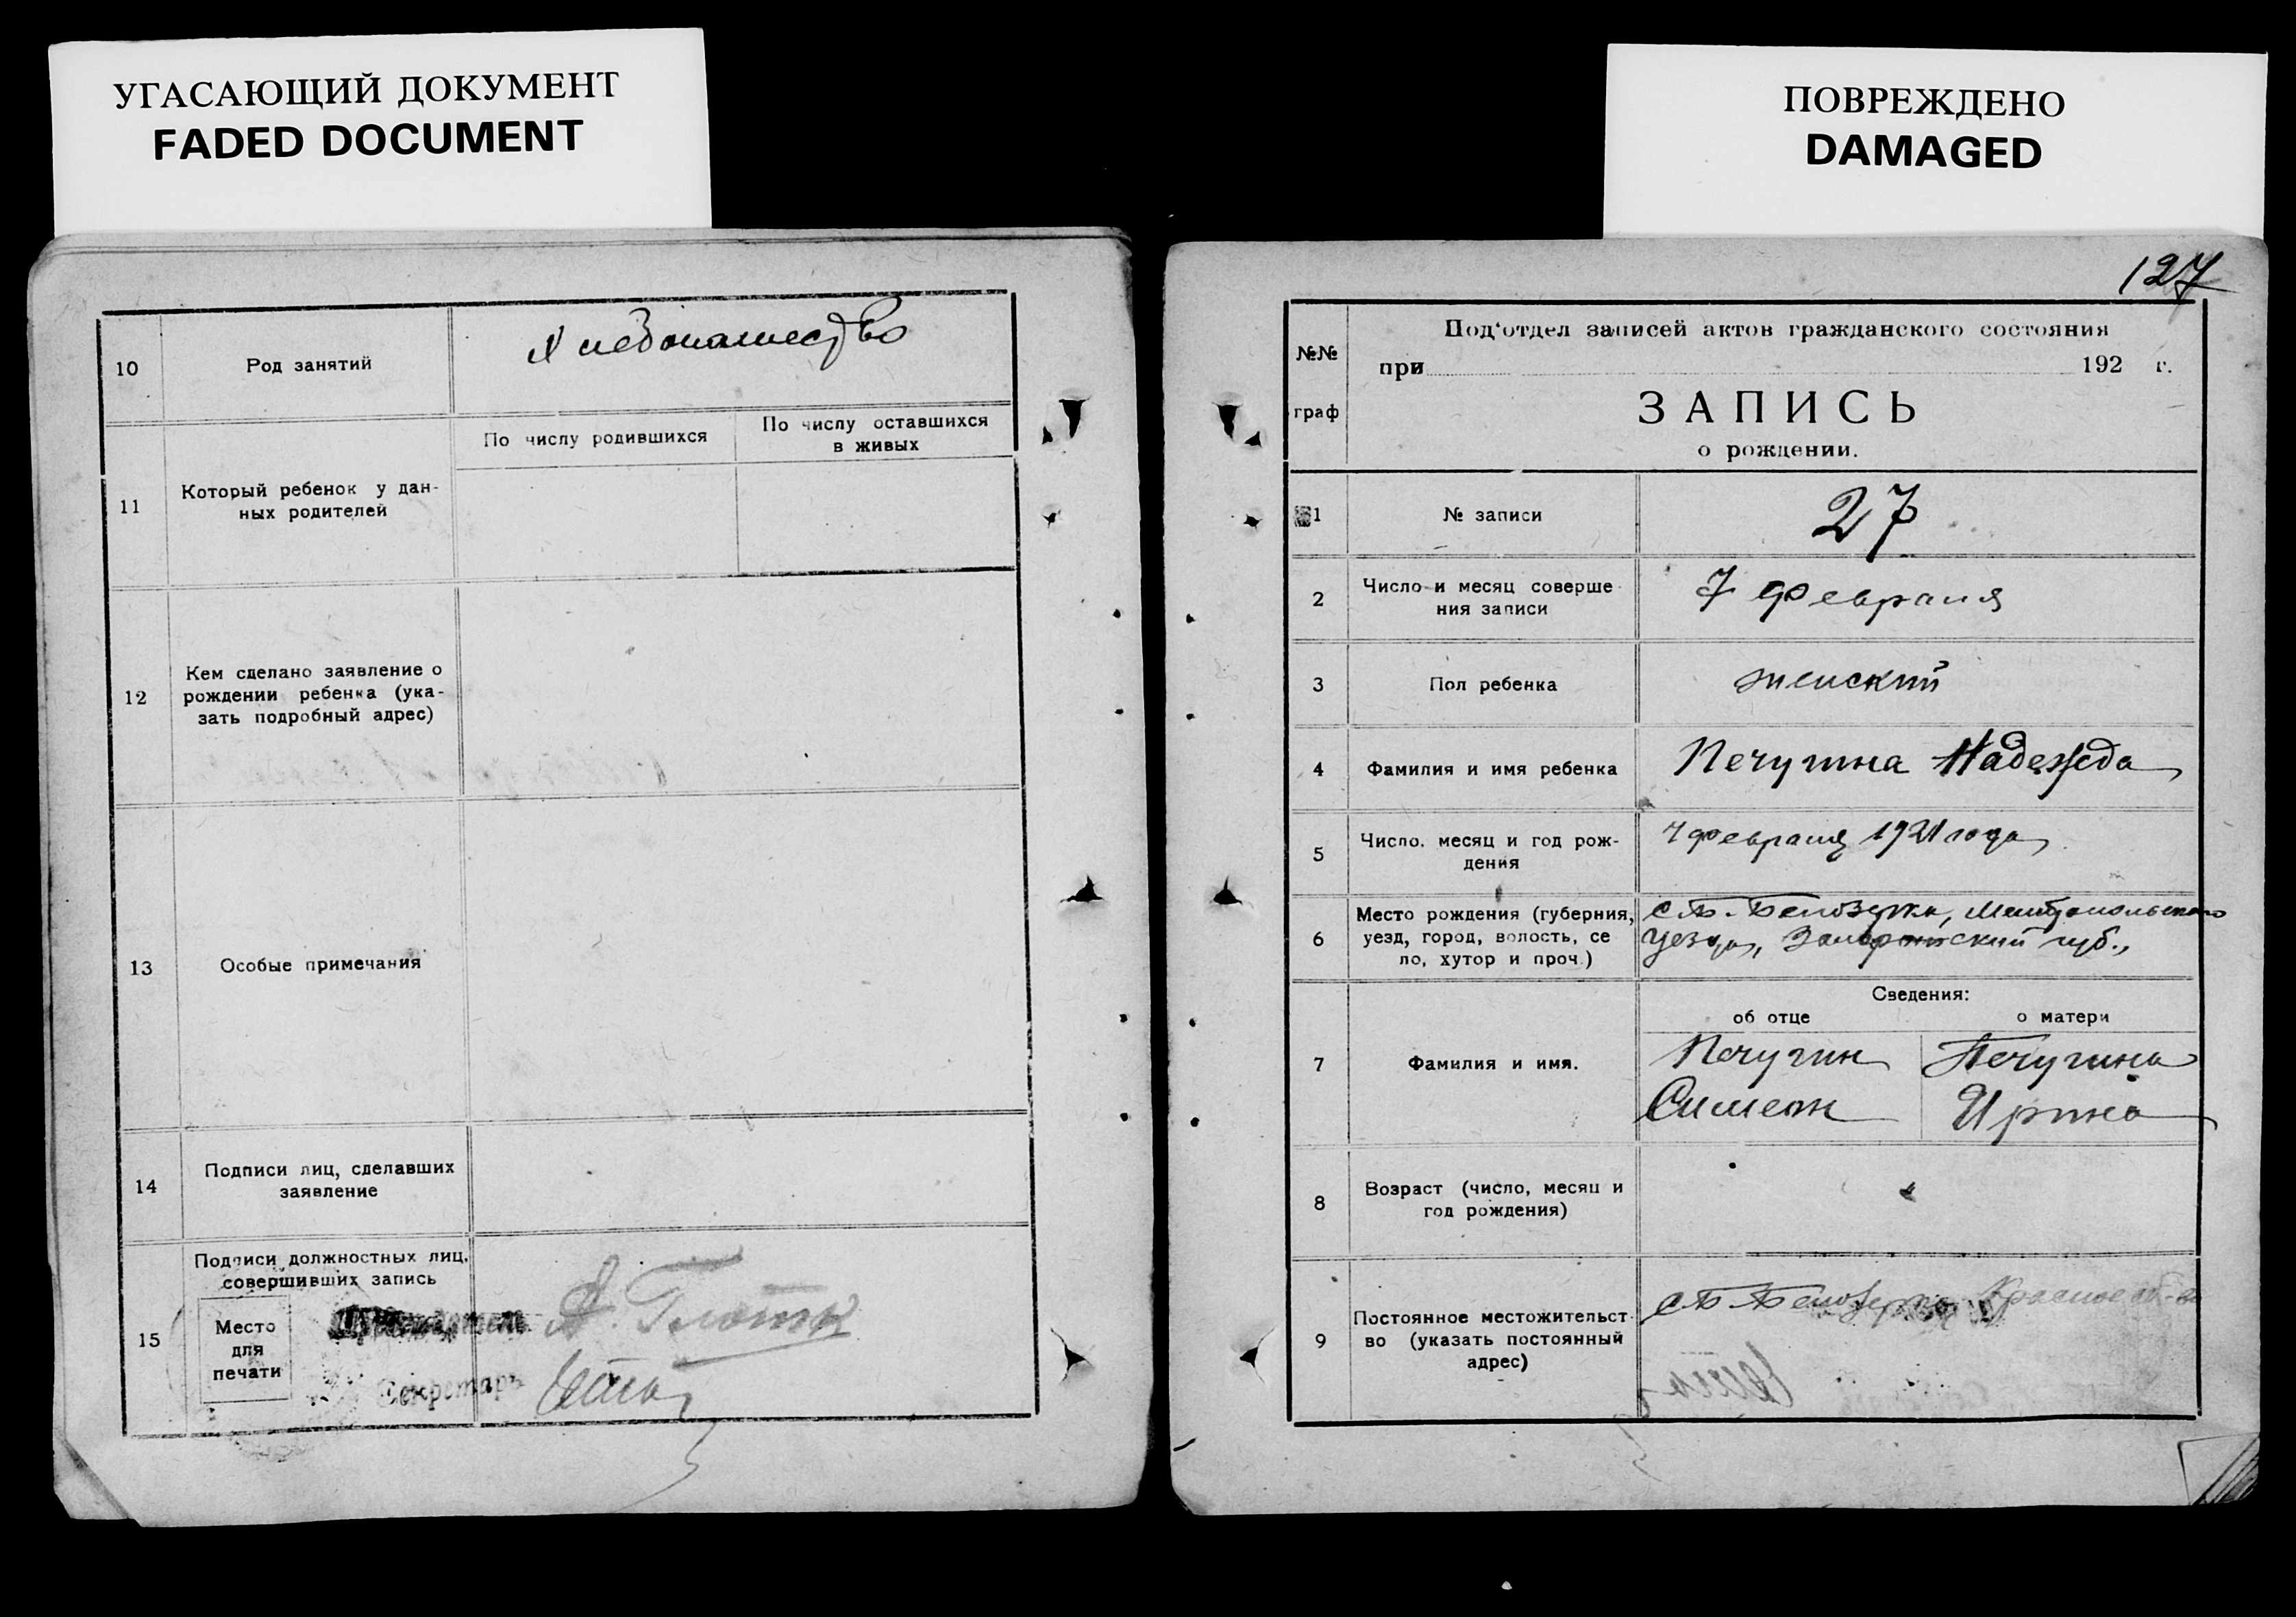 УГАСАЮЩИЙ ДОКУМЕНТ
FADED DOCUMENT
ПОВРЕЖДЕНО
DAMAGED
10
Род занятий
Хлебопашество
11
Который ребенок у дан-
ных родителей
По числу родившихся
По числу оставшихся
в живых
12
Кем сделано заявление о
рождении ребенка (ука-
зать подробный адрес)
13
Особые примечания
14
Подписи лиц, сделавших
заявление
15
Подписи должностных лиц,
совершивших запись
Место
для
печати
Секретарь
127
№№
граф
Под'отдел записей актов гражданского состояния
при 192 г.
ЗАПИСЬ
о рождении.
1
№ записи
27
2
Число и месяц соверше
ния записи
7 февраля
3
Пол ребенка
женский
4
Фамилия и имя ребенка
Печугина Надежда
5
Число, месяц и год рож-
дения
4 февраля 1921 года
6
Место рождения (губерния,
уезд, город, волость, се
ло, хутор и проч.)
с Б. Белозерка, Мелитопольского
уезда, губ.,
Сведения:
об отце
о матери
7
Фамилия и имя.
Печугин
Симеон
Печугина
Ирина
8
Возраст (число, месяц и
год рождения)
9
Постоянное местожительст
во (указать постоянный
адрес)
с Б. Белозерка